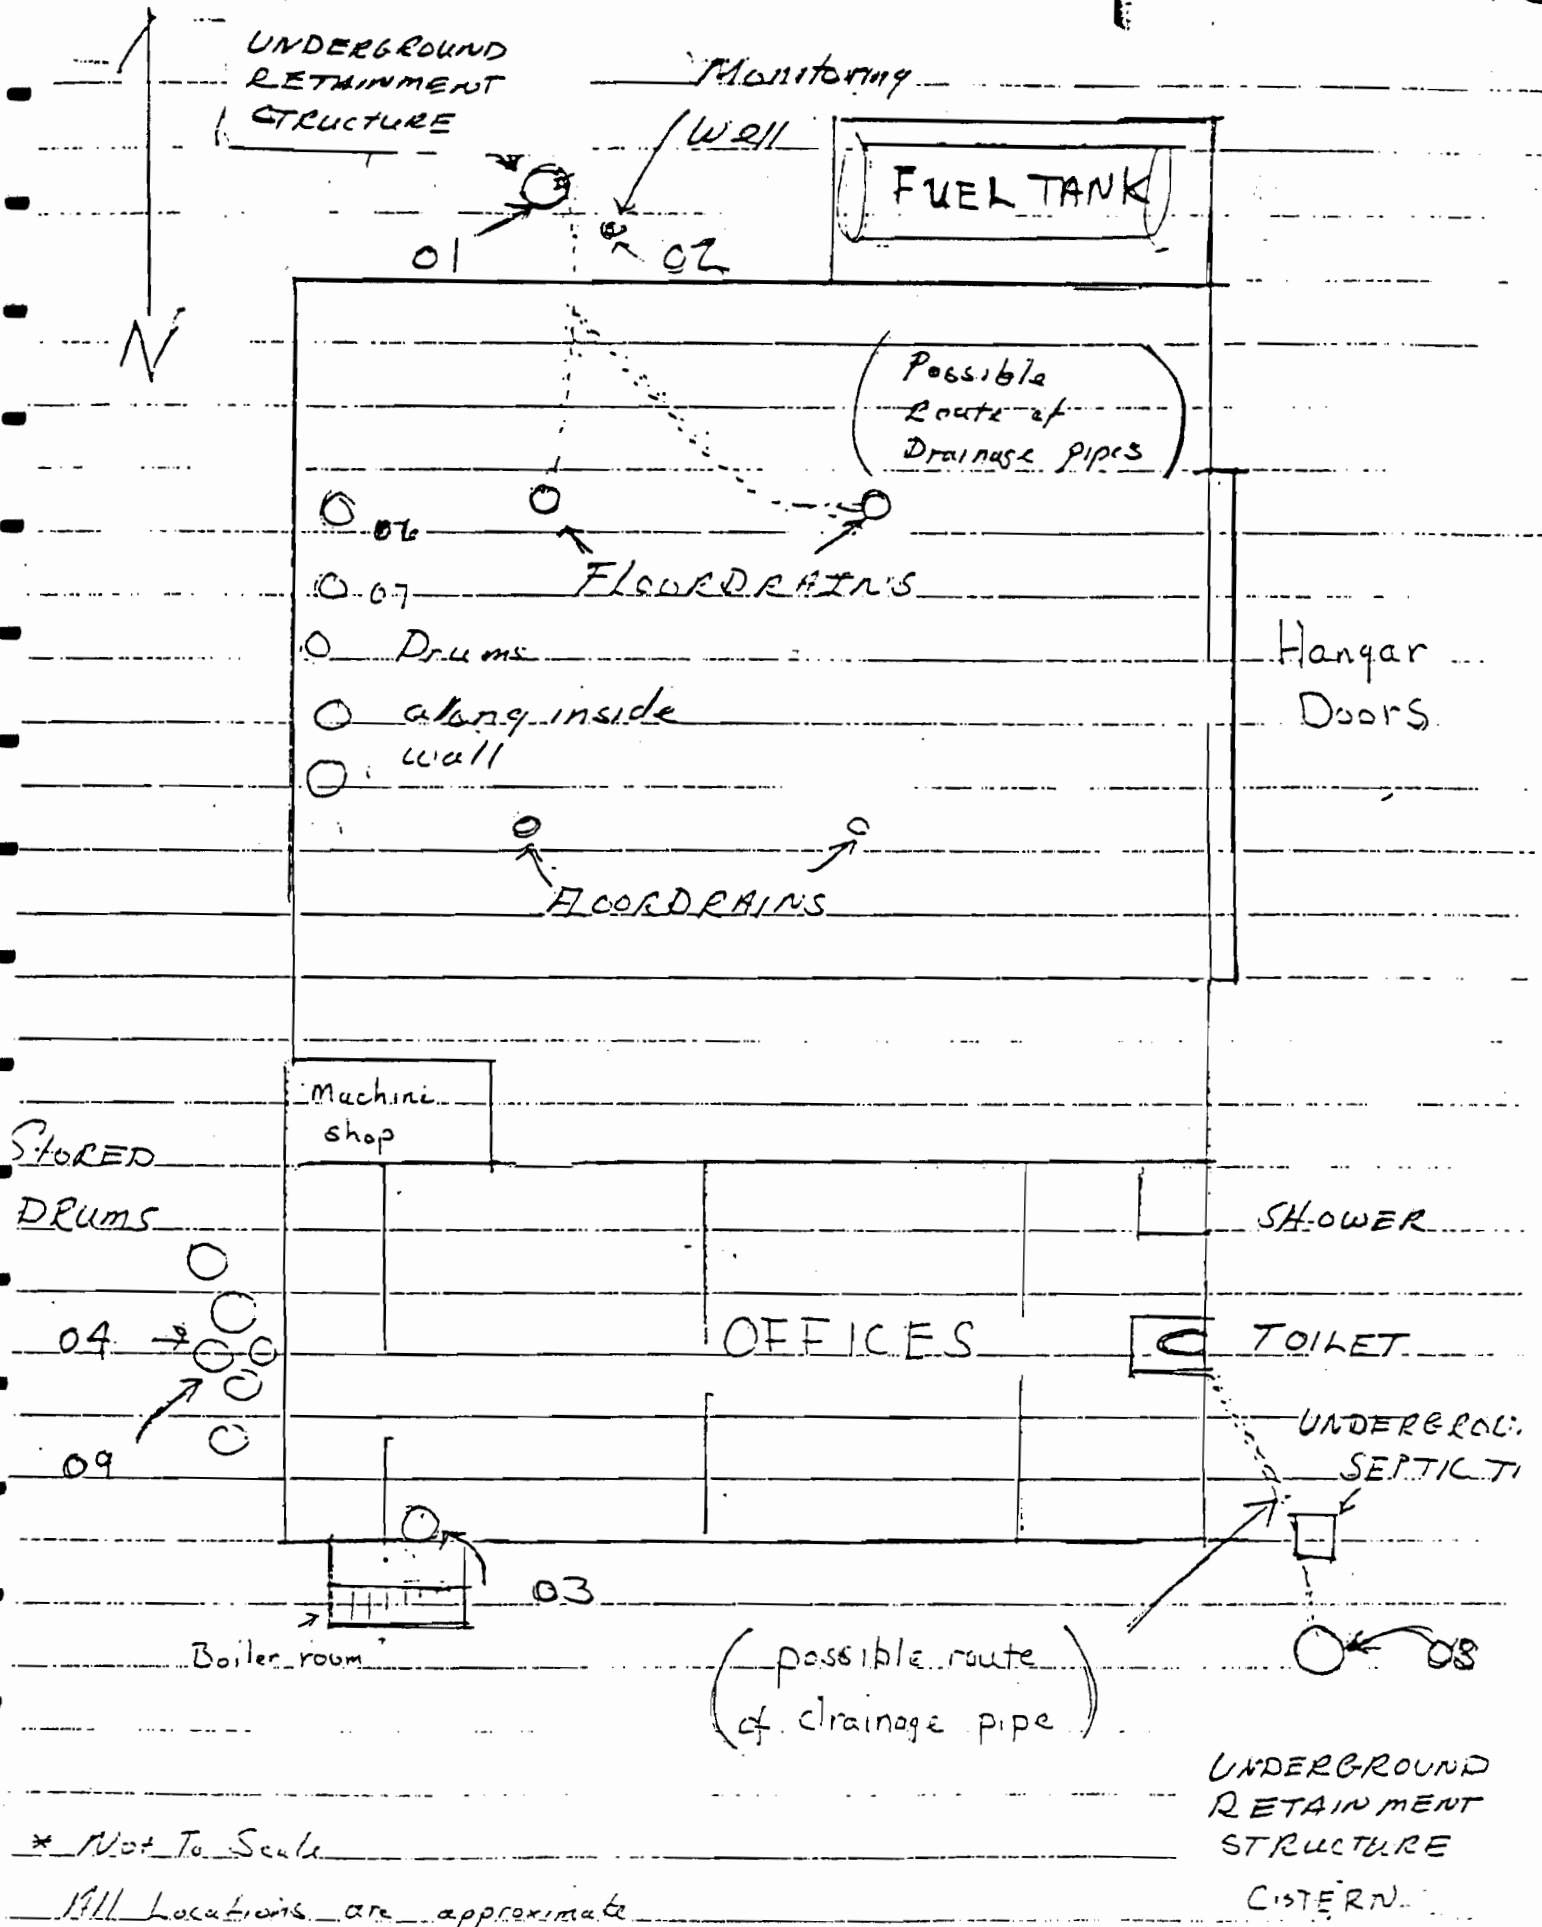 UNDERGROUND
RETAINMENT
STRUCTURE
Monitoring
Well
FUEL TANK
01
02
N
(Possible
Route of
Drainage pipes)
06
07
FLOORDRAINS
Drums
along inside
wall
Hangar
Doors
FLOORDRAINS
Machine
shop
STORED
DRUMS
SHOWER
04
OFFICES
TOILET
09
UNDERGROU
SEPTIC T
03
Boiler room
(possible route
of drainage pipe)
08
UNDERGROUND
RETAINMENT
STRUCTURE
CISTERN
* Not To Scale
All Locations are approximate